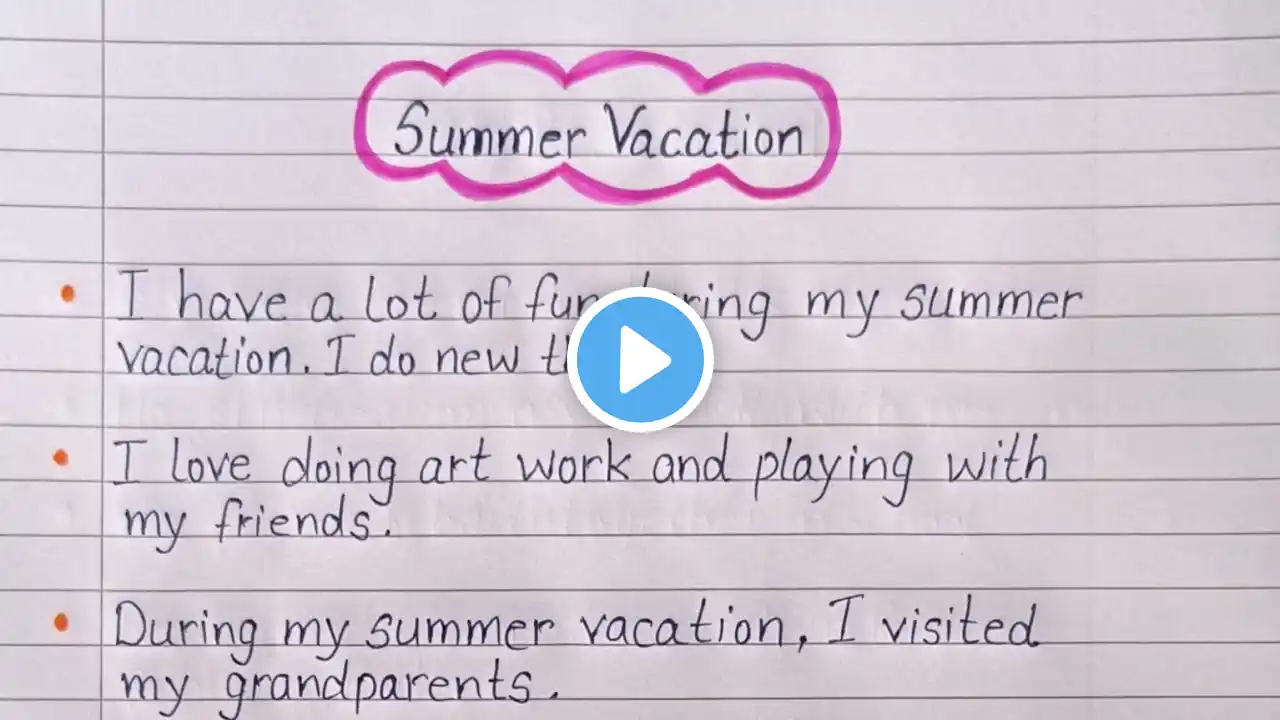 Summer Vacation
I have a lot of fun during my summer
vacation. I do new
I love doing art work and playing with
my friends.
During my summer vacation, I visited
my grandparents.